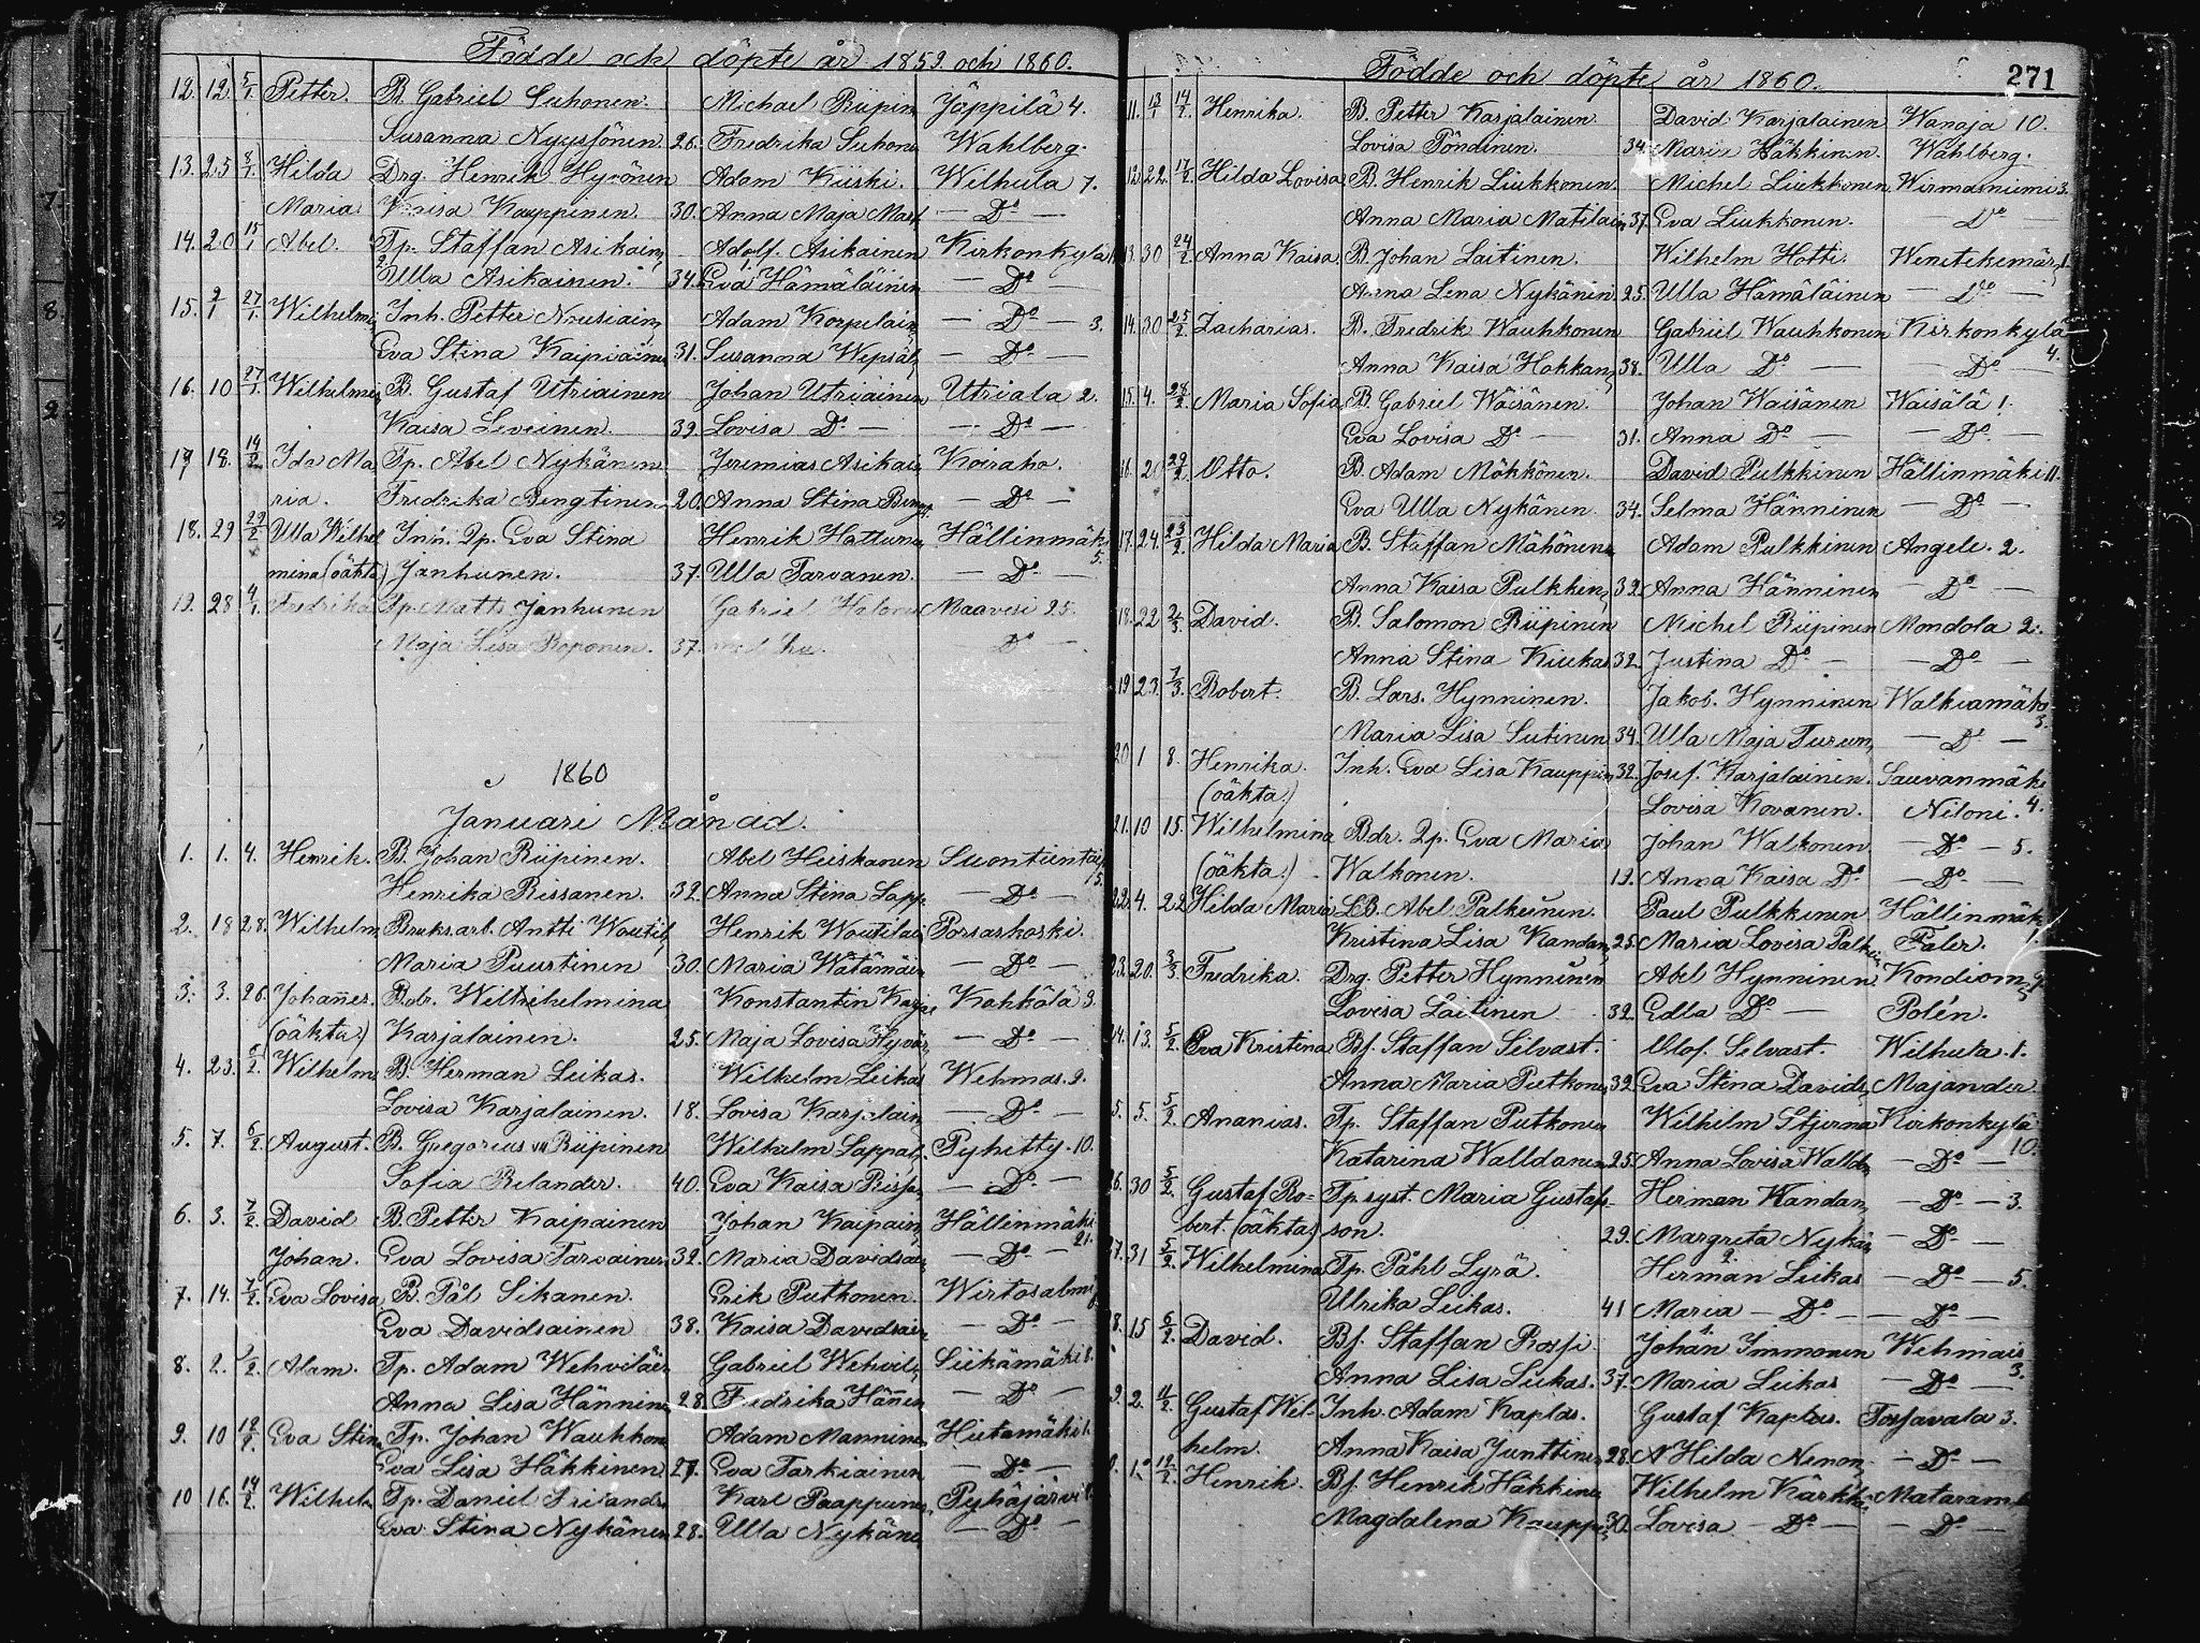 Födde och döpte år 1859 och 1860.
12. 12. 5/1. Petter. B. Gabriel Suhonen. Michael Riipin Jäppilä 4.
Susanna Nyyssönen 26. Fredrika Suhone Wahlberg.
13. 25 8/1. Hilda Drg. Henrik Hyvönen Adam Kiiski. Wilhula 7.
Maria Kaisa Kauppinen. 30. Anna Maja Mart — Do —
14. 20 15/1 Abel. Tp. Staffan Asikain, Adolf. Asikainen Kirkonkylä
Ulla Asikainen. 34. Eva Hämäläinen — Do —
15. 2/1 27/1. Wilhelmi Inh. Petter Nousiain, Adam Korpelain, — Do — 3.
Eva Stina Kaipiainen 31. Susanna Wepsäl, — Do —
16. 10 27/1. Wilhelmi B. Gustaf Utriainen Johan Utriainen Utriala 2.
Kaisa Leveinen. 39. Lovisa Do — — Do —
17 18. 14/2 Ida Ma Tp. Abel Nykänen Jeremias Asikai Koiraho.
ria. Fredrika Bengtinen 20. Anna Stina Bengt. — Do —
18. 29 29/2 Ulla Wilhel Inh. Qp. Eva Stina Henrik Hattunen Hällinmäki 5.
mina (oäkta) Janhunen. 37. Ulla Tarvanen. — Do —
19. 28 4/1. Fredrika Tp. Matts Janhunen Gabriel Holone Maavesi 25.
Maja Lisa Roponen. 37. Do —
1860
Januari Månad.
1. 1. 4. Henrik. B. Johan Riipinen. Abel Heiskanen Suontientaip 15.
Henrika Rissanen. 32. Anna Stina Lapp. — Do —
2. 18 28. Wilhelm Bruksarb. Antti Woutil, Henrik Woutilai Porsaskoski.
Maria Puustinen 30. Maria Wätämäin — Do —
3. 3. 26. Johannes. Bdr. Wilhelmina Konstantin Karja Kahkölä 3.
(oäkta) Karjalainen. 25. Maja Lovisa Hyvär, — Do —
4. 23. 5/2. Wilhelm B. Herman Leikas. Wilhelm Leikas Wehmas. 9.
Lovisa Karjalainen. 18. Lovisa Karjalain, — Do —
5. 7. 6/2. August. B. Gregorius Riipinen Wilhelm Lappal, Pyhetty. 10.
Sofia Relander. 40. Eva Kaisa Rissa, — Do —
6. 3. 7/2. David B. Petter Kaipainen Johan Kaipain, Hällinmäki 21.
Johan. Eva Lovisa Tarvainen 32. Maria Davidsai — Do —
7. 14. 7/2. Eva Lovisa B. Pål Sikanen. Erik Putkonen. Wirtosalmi
Eva Davidsainen 38. Kaisa Davidsai — Do —
8. 2. /2. Adam. Tp. Adam Wehviläi Gabriel Wehvil, Siikämäki 6.
Anna Lisa Hänninen 28 Fredrika Hännen — Do —
9. 10 12/2. Eva Stin Tp. Johan Wauhkon Adam Manninen Hiitomäki
Eva Lisa Häkkinen 27. Eva Tarkiainen — Do —
10 16. 14/2. Wilhelm Tp. Daniel Frilande Karl Paappane Pyhäjärvi
Eva Stina Nykänen 28. Ulla Nykäne — Do —
Födde och döpte år 1860. 271
11. 13/1 14/2. Henrika. B. Petter Karjalainen. David Karjalainen Wanaja 10.
Lovisa Pöndinen. 34. Maria Häkkinen. Wahlberg.
12. 22. 17/2. Hilda Lovisa B. Henrik Liukkonen. Michel Liukkonen Wirmasniemi 3.
Anna Maria Matilain 37. Eva Liukkonen. — Do —
13. 30 24/2. Anna Kaisa. B. Johan Laitinen. Wilhelm Hotti. Wenetekemär, 1.
Anna Lena Nykänen 25. Ulla Hämäläinen — Do —
14. 30 25/2. Zacharias. B. Fredrik Wauhkonen Gabriel Wauhkonen Kirkonkylä 4.
Anna Kaisa Hokkan, 38. Ulla Do — — Do —
15. 4. 28/2. Maria Sofia B. Gabriel Wäisänen. Johan Waisänen Waisälä 1.
Eva Lovisa Do — 31. Anna Do — — Do —
16. 2 29/2. Otto. B. Adam Mökkönen. David Pulkkinen Hällinmäki 11.
Eva Ulla Nykänen. 34. Selma Hänninen — Do —
17. 24. 23/2. Hilda Maria B. Staffan Mähönen Adam Pulkkinen Angele. 2.
Anna Kaisa Pulkken, 32. Anna Hänninen — Do —
18. 22 2/3. David. B. Salomon Riipinen Michel Riipinen Mondola 2.
Anna Stina Kiukas 32. Justina Do — — Do —
19 23. 7/3. Robert. B. Lars. Hynninen. Jakob. Hynninen Walkiamäki 3.
Maria Lisa Sutinen 34. Ulla Maja Turun, — Do —
20 1 8. Henrika. Inh. Eva Lisa Kauppin 32. Josef. Karjalainen. Sauvanmäki 4.
(oäkta.) Lovisa Kovanen. Niloni.
21. 10 15. Wilhelmina Bdr. Qp. Eva Maria Johan Walkonen — Do — 5.
(oäkta.) Walkonen. 19. Anna Kaisa Do — Do —
22. 4. 22 Hilda Maria LB. Abel Palkeinen. Paul Pulkkinen Hällinmäk 1.
Kristina Lisa Kandan, 25. Maria Lovisa Palk Faler.
23. 20. 3/3 Fredrika. Drg. Petter Hynninen Abel Hynninen Kondiom, 9.
Lovisa Laitinen 32. Edla Do — Polén.
24. 13. 5/2. Eva Kristina Bf. Staffan Silvast. Olof. Selvast. Wilhula. 1.
Anna Maria Putkonen 32. Eva Stina Davids, Majander.
5. 5. 5/2. Ananias. Tp. Staffan Putkonen Wilhelm Stjerna Kirkonkylä 10.
Katarina Walldanen 25. Anna Lovisa Walld — Do —
26. 30 5/2. Gustaf Ro- Tp syst. Maria Gustafs- Herman Kandan, — Do — 3.
bert. (oäkta) son. 29. Margreta Nykä — Do —
27. 31 5/2. Wilhelmina Tp. Påhl Lyrä. Herman Leikas — Do — 5.
Ulrika Leikas. 41 Maria — Do — — Do —
8. 15 6/2. David. Bf. Staffan Rossi. Johan Immonen Wehmais 3.
Anna Lisa Leikas. 37. Maria Leikas — Do —
9. 2. 11/2. Gustaf Wil- Inh. Adam Kaplas. Gustaf Kaplas. Torsavala 3.
helm. Anna Kaisa Junttinen 28. A Hilda Nenon, — Do —
12/2. Henrik. Bf. Henrik Häkkine Wilhelm Kärkk Mataram
Magdalena Kauppi 30. Lovisa Do — — Do —